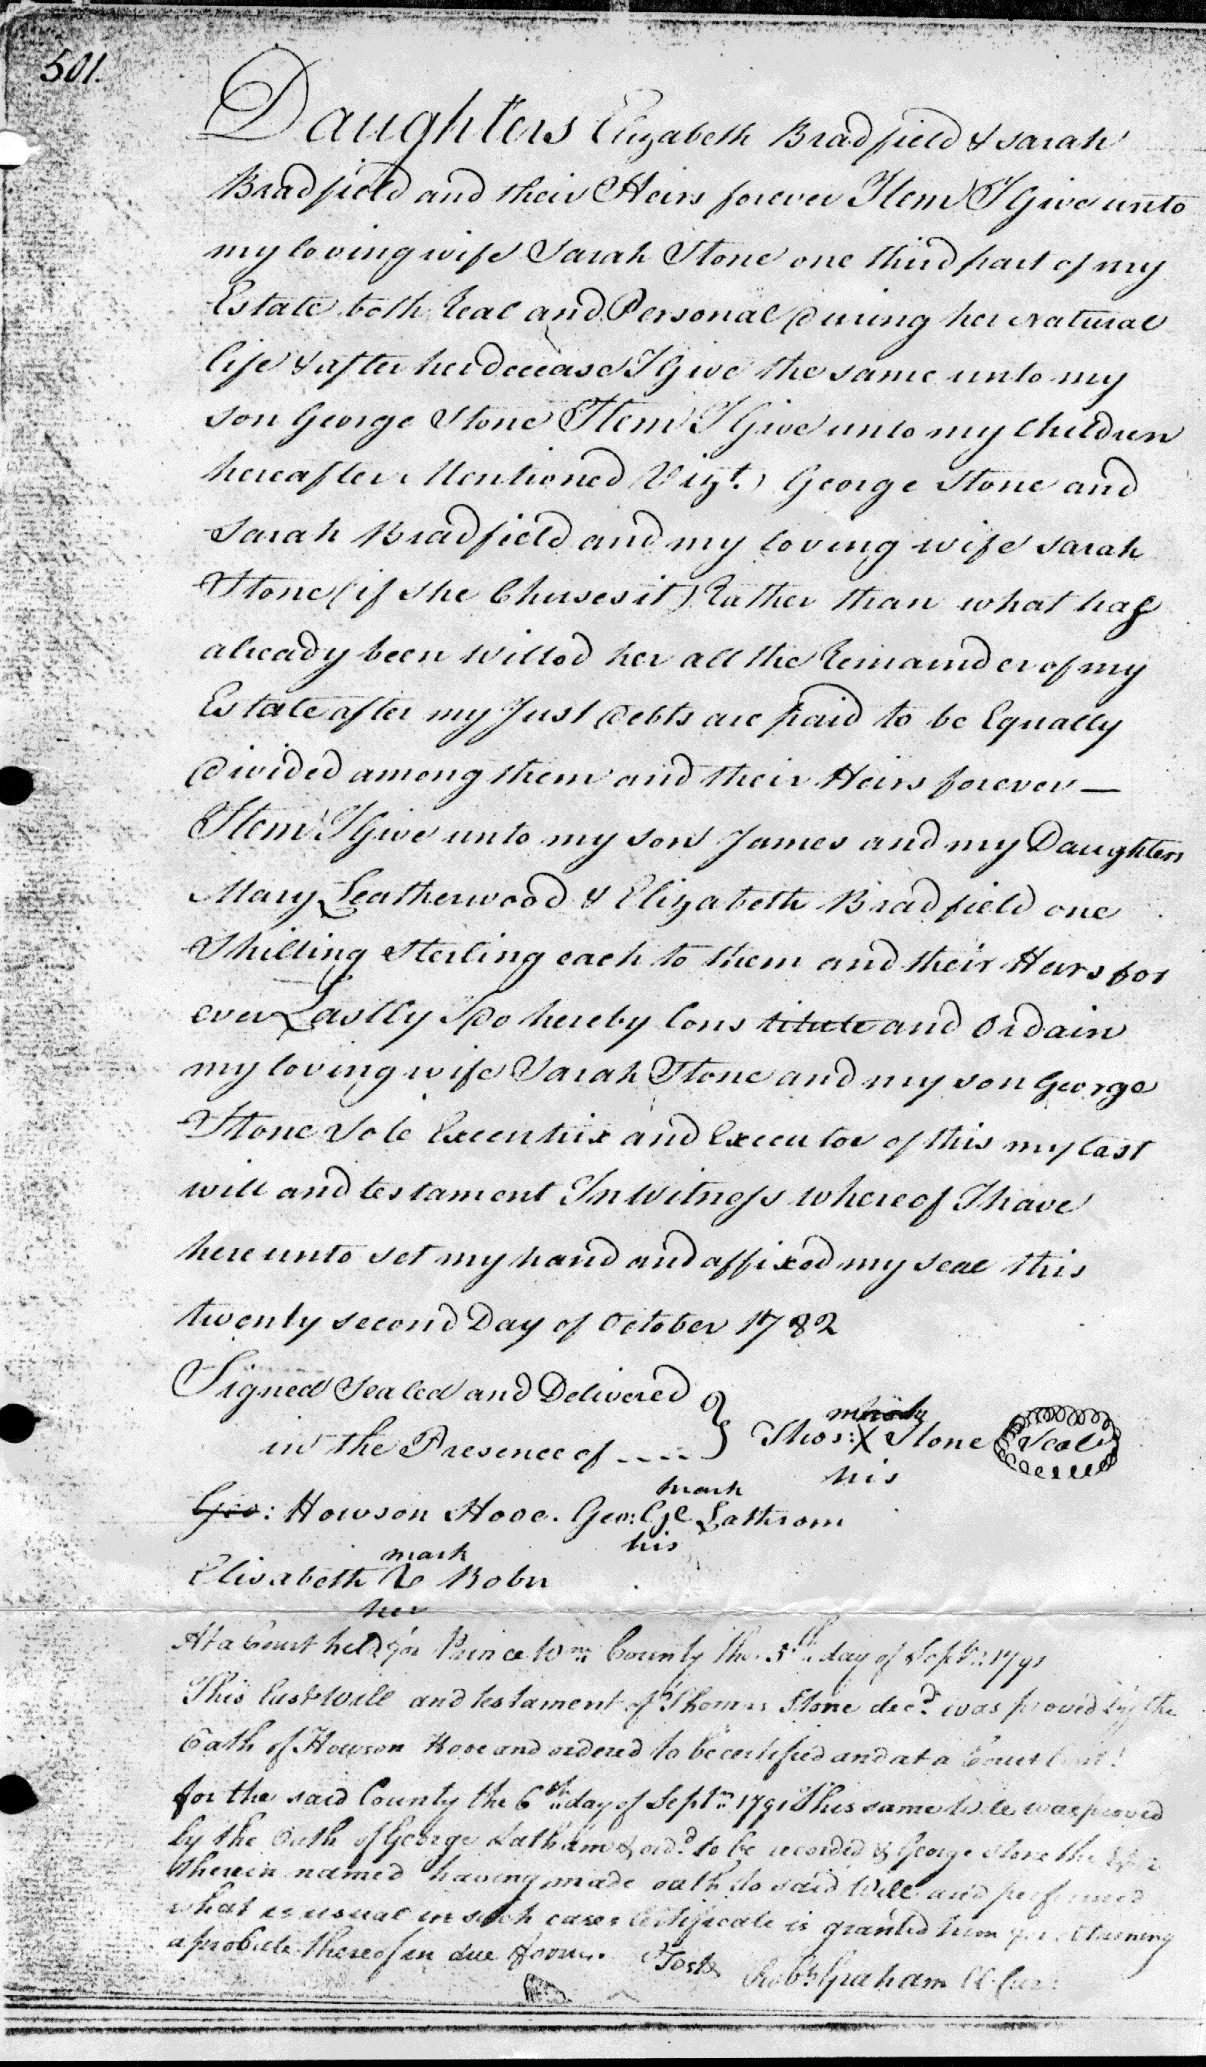 501.
Daughters Elizabeth Bradfield & Sarah
Bradfield and their Heirs forever Item I Give unto
my loving wife Sarah Stone one third part of my
Estate both Real and Personal During her Natural
life & after her Decease I Give the same unto my
son George Stone Item I Give unto my Children
hereafter Mentioned Vizt. George Stone and
Sarah Bradfield and my loving wife Sarah
Stone (if she Chuses it) Rather than what has
already been willed her all the Remainder of my
Estate after my Just Debts are paid to be Equally
Divided among them and their Heirs forever —
Item I Give unto my son James and my Daughters
Mary Leatherwood & Elizabeth Bradfield one
Shilling Sterling each to them and their Heirs for
ever Lastly I Do hereby Constitute and Ordain
my loving wife Sarah Stone and my son George
Stone Sole Executrix and Executor of this my last
will and testament In Witness whereof I have
here unto set my hand and affixed my seal this
twenty second Day of October 1782
Signed Sealed and Delivered
in the Presence of ....
mark
Thos: X Stone Seal
his
mark
Geo: Howson Hooe. Geo: Lathrom
his
mark
Elisabeth Bober
her
At a Court held for Prince Wm. County the 5th day of Septr. 1791
This last Will and testament of Thomas Stone decd. was proved by the
Oath of Howson Hooe and ordered to be certified and at a Court Cont.
for the said County the 6th day of Septr. 1791 This same Will was proved
by the Oath of George Latham & ord. to be recorded & George Stone the
therein named having made oath to said Will and performed
what is usual in such cases Certificate is granted him for obtaining
a probate thereof in due form.
Teste Robt. Graham Cl. Cur.